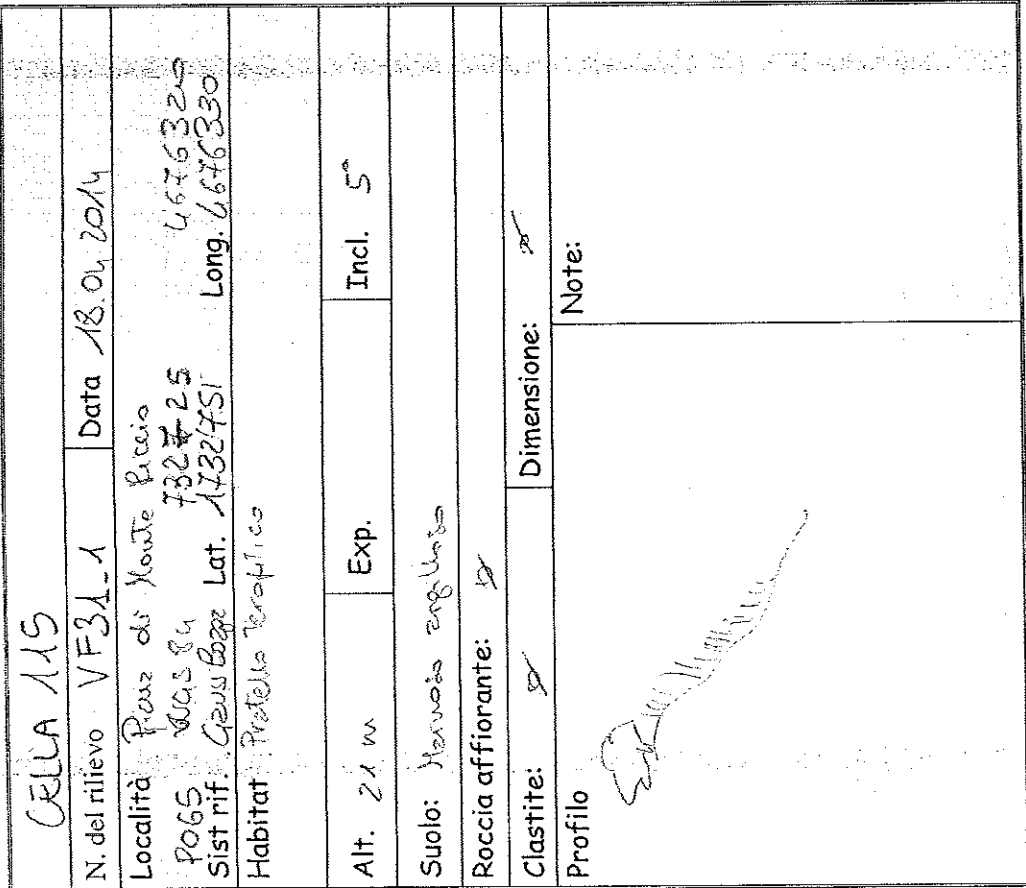 CELLA 115
N. del rilievo VF31_1 Data 18.04.2014
Località Piana di Monte Riccio
P065 WGS84 732725 4676320
Sist rif. Gauss Boaga Lat. 1732751 Long. 4676330
Habitat Pratello Xerofilico
Alt. 21 m Exp. Incl. 5°
Suolo: Marnoso argilloso
Roccia affiorante: ø
Clastite: ø Dimensione: ø
Profilo Note: